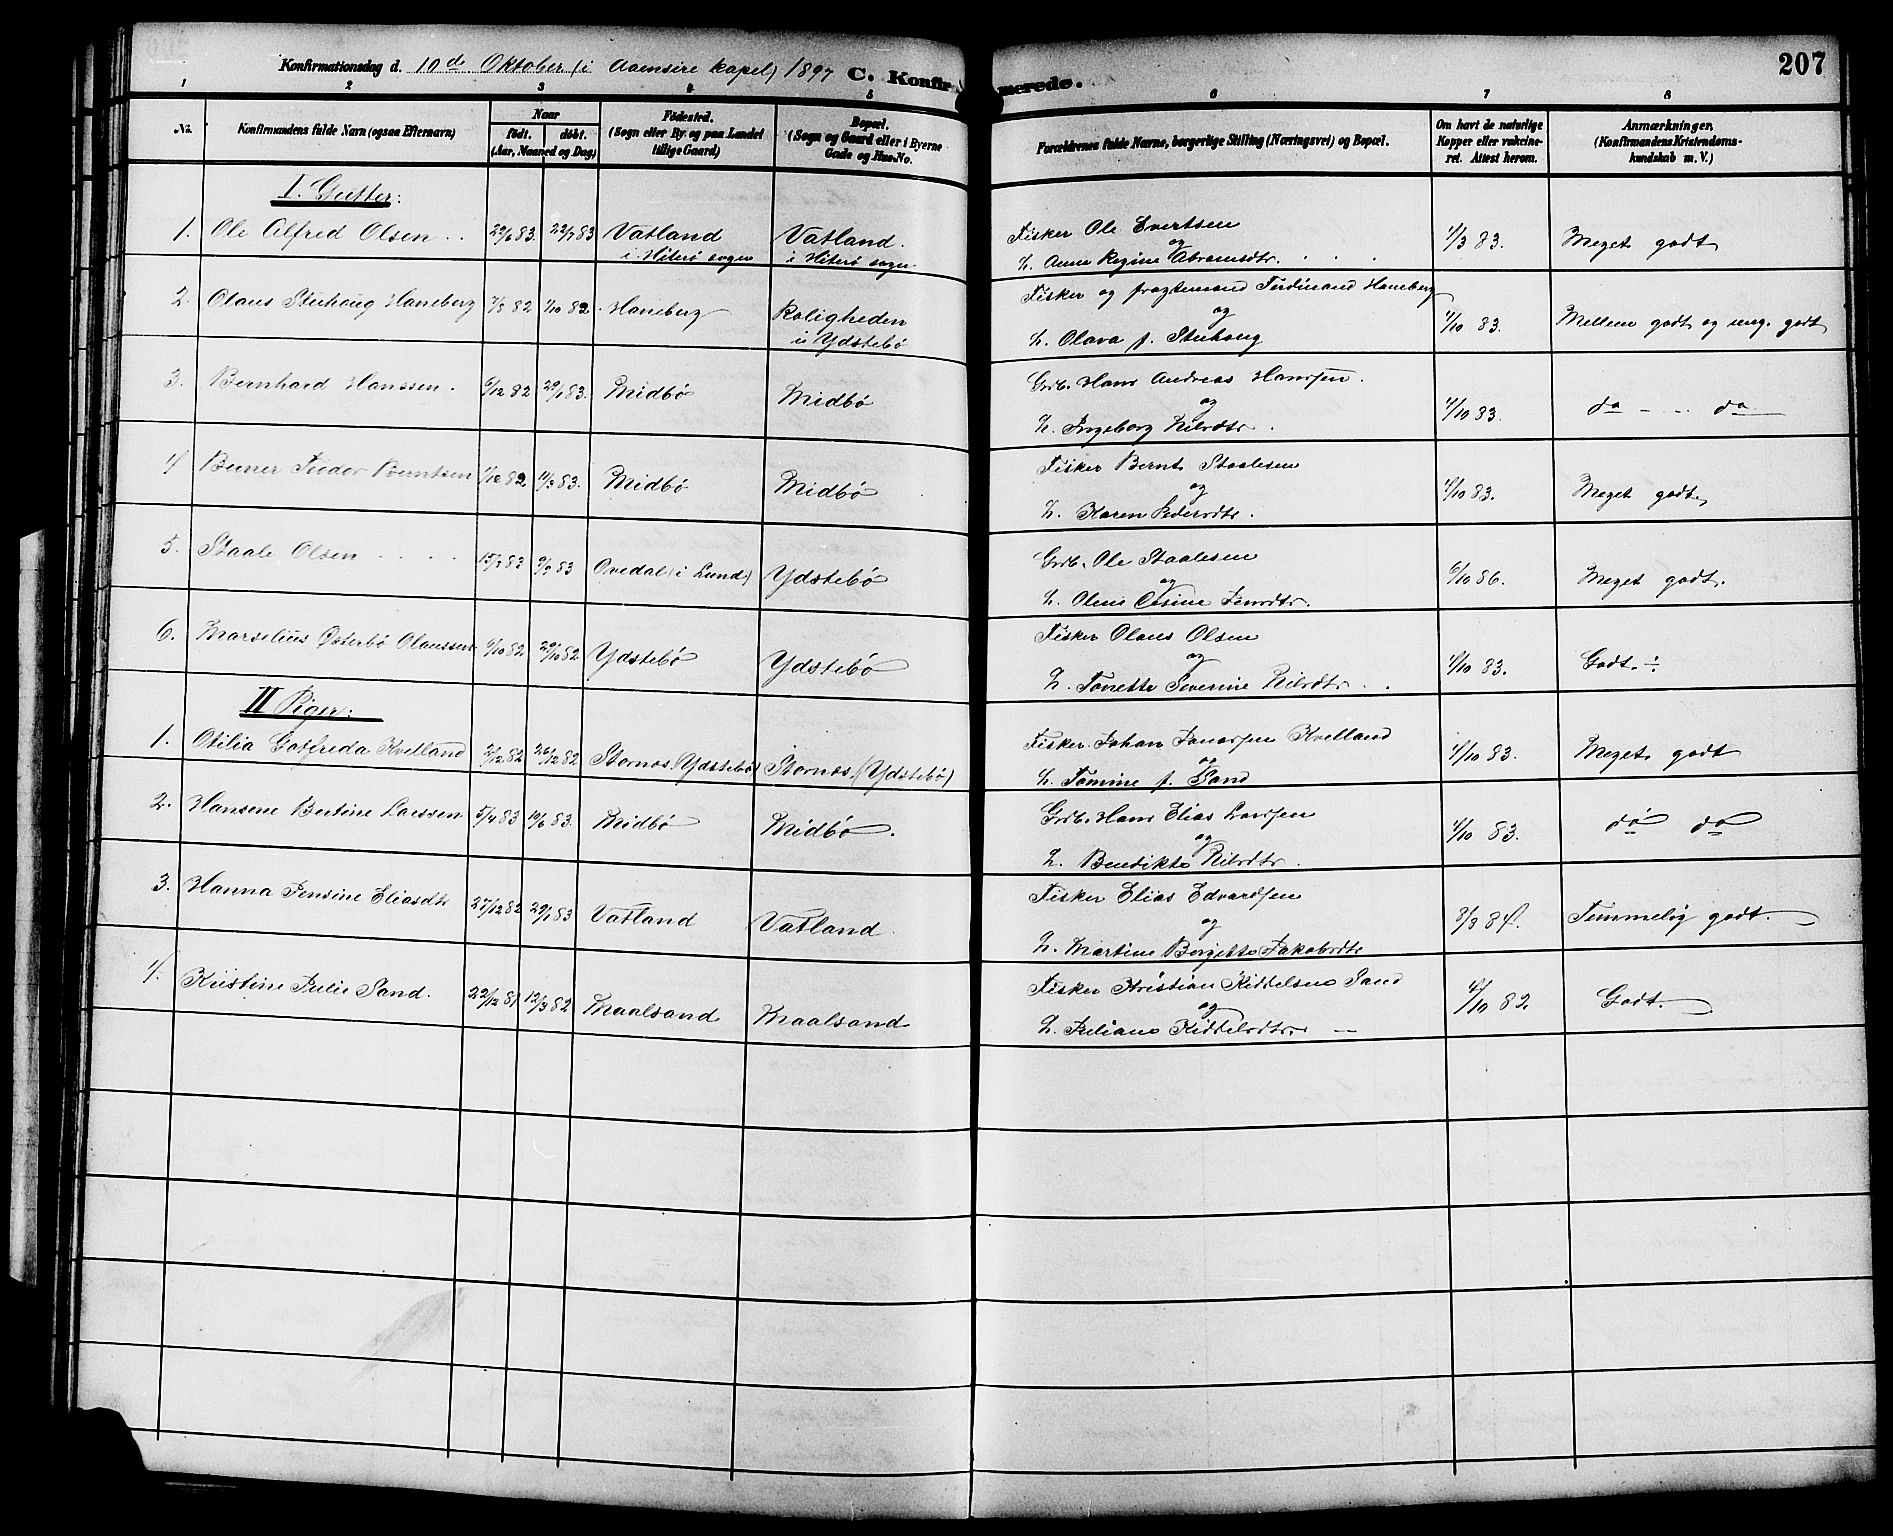 207
Konfirmationsdag d. 10de Oktober (i Aaensire kapel) 1897 C. Konfirmerede.
1 2 3 4 5 6 7 8
No. Konfirmandens fulde Navn (ogsaa Efternavn) Naar født. døbt. (Aar, Maaned og Dag) Fødested. (Sogn eller By og paa Landet tillige Gaard) Bopæl. (Sogn og Gaard eller i Byerne Gade og Hus-No. Forældrenes fulde Navne, borgerlige Stilling (Næringsvei) og Bopæl. Om havt de naturlige Kopper eller vakcineret. Attest herom. Anmærkninger. (Konfirmandens Kristendomskundskab m. V.)
I. Gutter:
1. Ole Alfred Olsen 22/7 83 Vatland i Hiterø sogn Vatland. i Hiterø sogn Fisker Ole Evertsen og H. Anne Regine Abramsdtr. 1/3 83. Meget godt
2. Olaus Stuhaug Haneberg 1/10 82 Haneberg Roligheden i Ydstebø Fisker og fragtemand Ferdinand Haneberg og H. Olava f. Stuhaug 4/10 83. Mellem godt og meg. godt
3. Bernhard Hanssen. 6/12 82 29/1 83. Midbø Midbø Grb. Hans Andreas Hanssen. og H. Ingeborg Nilsdtr. 4/10 83. do - do
4 Berner Teodor Berntsen 1/12 82 11/3 83. Midbø Midbø Fisker Bernt Staalesen og H. Karen Pedersdtr. 4/10 83. Meget godt.
5. Staale Olsen 15/7 83 9/9 83 Ovedal (i Lund) Ydstebø Grb. Ole Staalesen og H. Olene Cesine Jensdtr. 6/10 86. Meget godt.
6. Marselius Østerbø Olaussen 6/10 82 29/10 82 Ydstebø Ydstebø Fisker Olaus Olsen og H. Tonette Severine Nilsdtr 4/10 83. Godt ÷
II Piger:
1. Otilia Gotfreda Kvelland 2/12 82 26/12 82 Stornes (Ydstebø) Stornes. (Ydstebø) Fisker Johan Jonassen Kvelland og H. Tomine f. Sand 4/10 83. Meget godt
2. Hansene Bertine Larssen 5/4 83 10/6 83. Midbø Midbø. Grb. Hans Elias Larssen og H. Benedikte Nilsdtr. 4/10 83. do do
3. Hanna Jensine Eliasdtr 27/12 82 29/1 83 Vatland Vatland Fisker Elias Edvardsen og H. Martine Bergitte Jakobsdtr 8/8 84. Temmelig godt.
4. Kristine Julie Sand. 22/12 81 12/3 82 Maalsand Maalsand Fisker Kristian Kiddelsen Sand og H. Juliane Kiddelsdtr. 4/10 82 Godt.